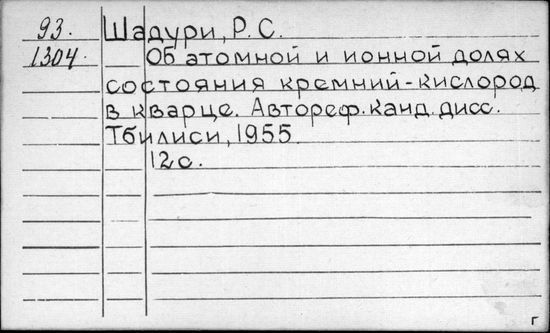 93. Шадури, Р. С.
1304. Об атомной и ионной долях
состояния кремний-кислород
в кварце. Автореф. канд. дисс.
Тбилиси, 1955
12с.
г